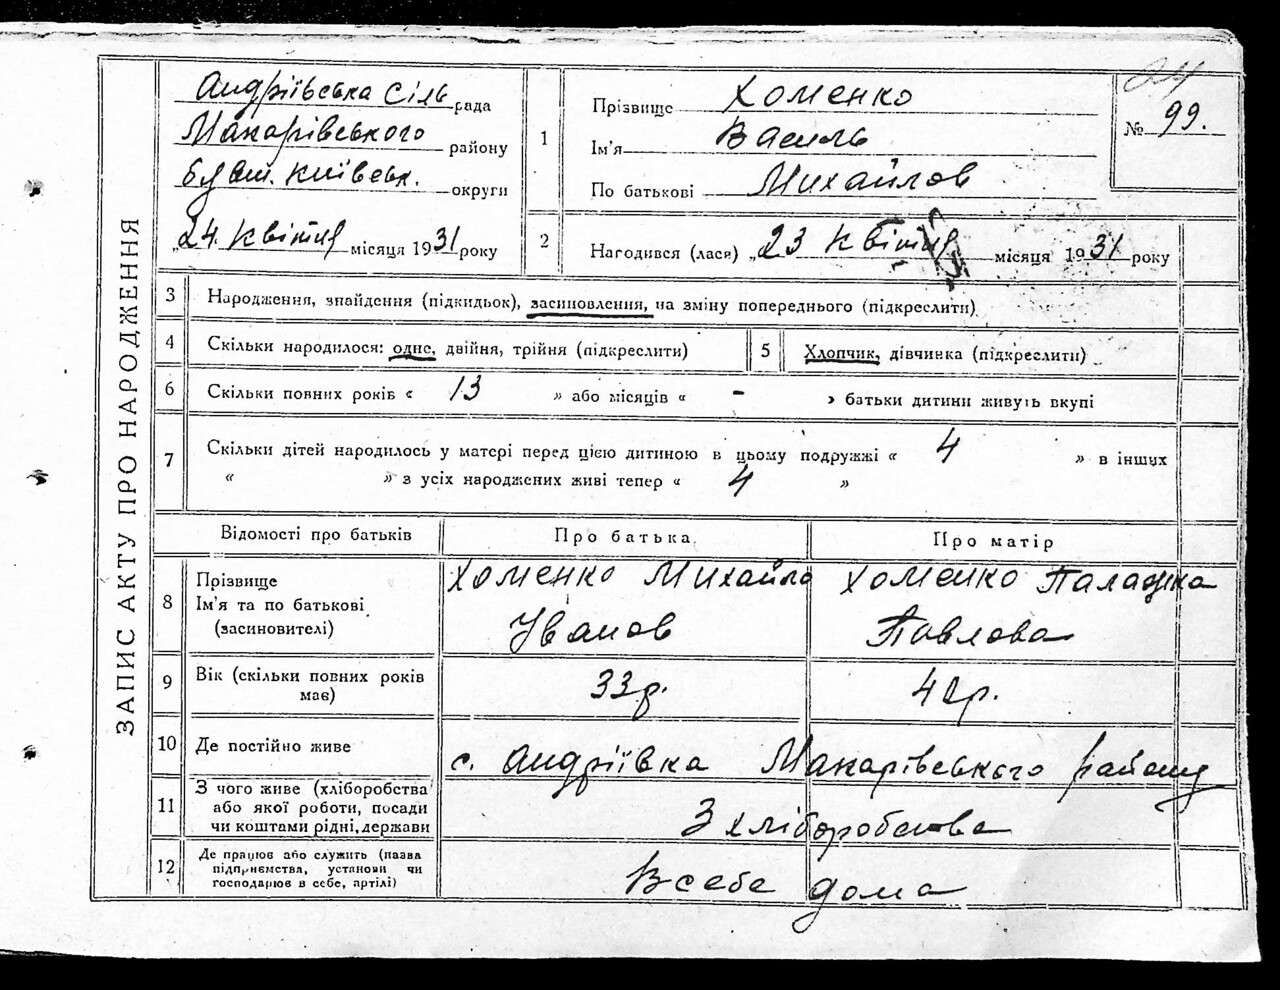 ЗАПИС АКТУ ПРО НАРОДЖЕННЯ
Андріївська сіль рада
Макарівського району
Київськ. округи
„24 Квітня місяця 1931 року
1
Прізвище Хоменко
Ім'я Василь
По батькові Михайлов
№ 99.
2
Нагодився (лася) „23 Квітня місяця 1931 року
3 Народження, знайдення (підкидьок), засиновлення, на зміну попереднього (підкреслити)
4 Скільки народилося: одне, двійня, трійня (підкреслити)
5 Хлопчик, дівчинка (підкреслити)
6 Скільки повних років « 13 » або місяців « - » батьки дитини живуть вкупі
7 Скільки дітей народилось у матері перед цією дитиною в цьому подружжі « 4 » в інших
« » з усіх народжених живі тепер « 4 »
Відомості про батьків Про батька Про матір
8 Прізвище
Ім'я та по батькові
(засиновителі)
Хоменко Михайло
Іванов
Хоменко Палажка
Павлова
9 Вік (скільки повних років
має)
33 р. 42 р.
10 Де постійно живе с. Андріївка Макарівського району
11 З чого живе (хліборобства
або якої роботи, посади
чи коштами рідні, держави
З хліборобства
12 Де працює або служить (назва
підприємства, установи чи
господарює в себе, артілі)
В себе дома